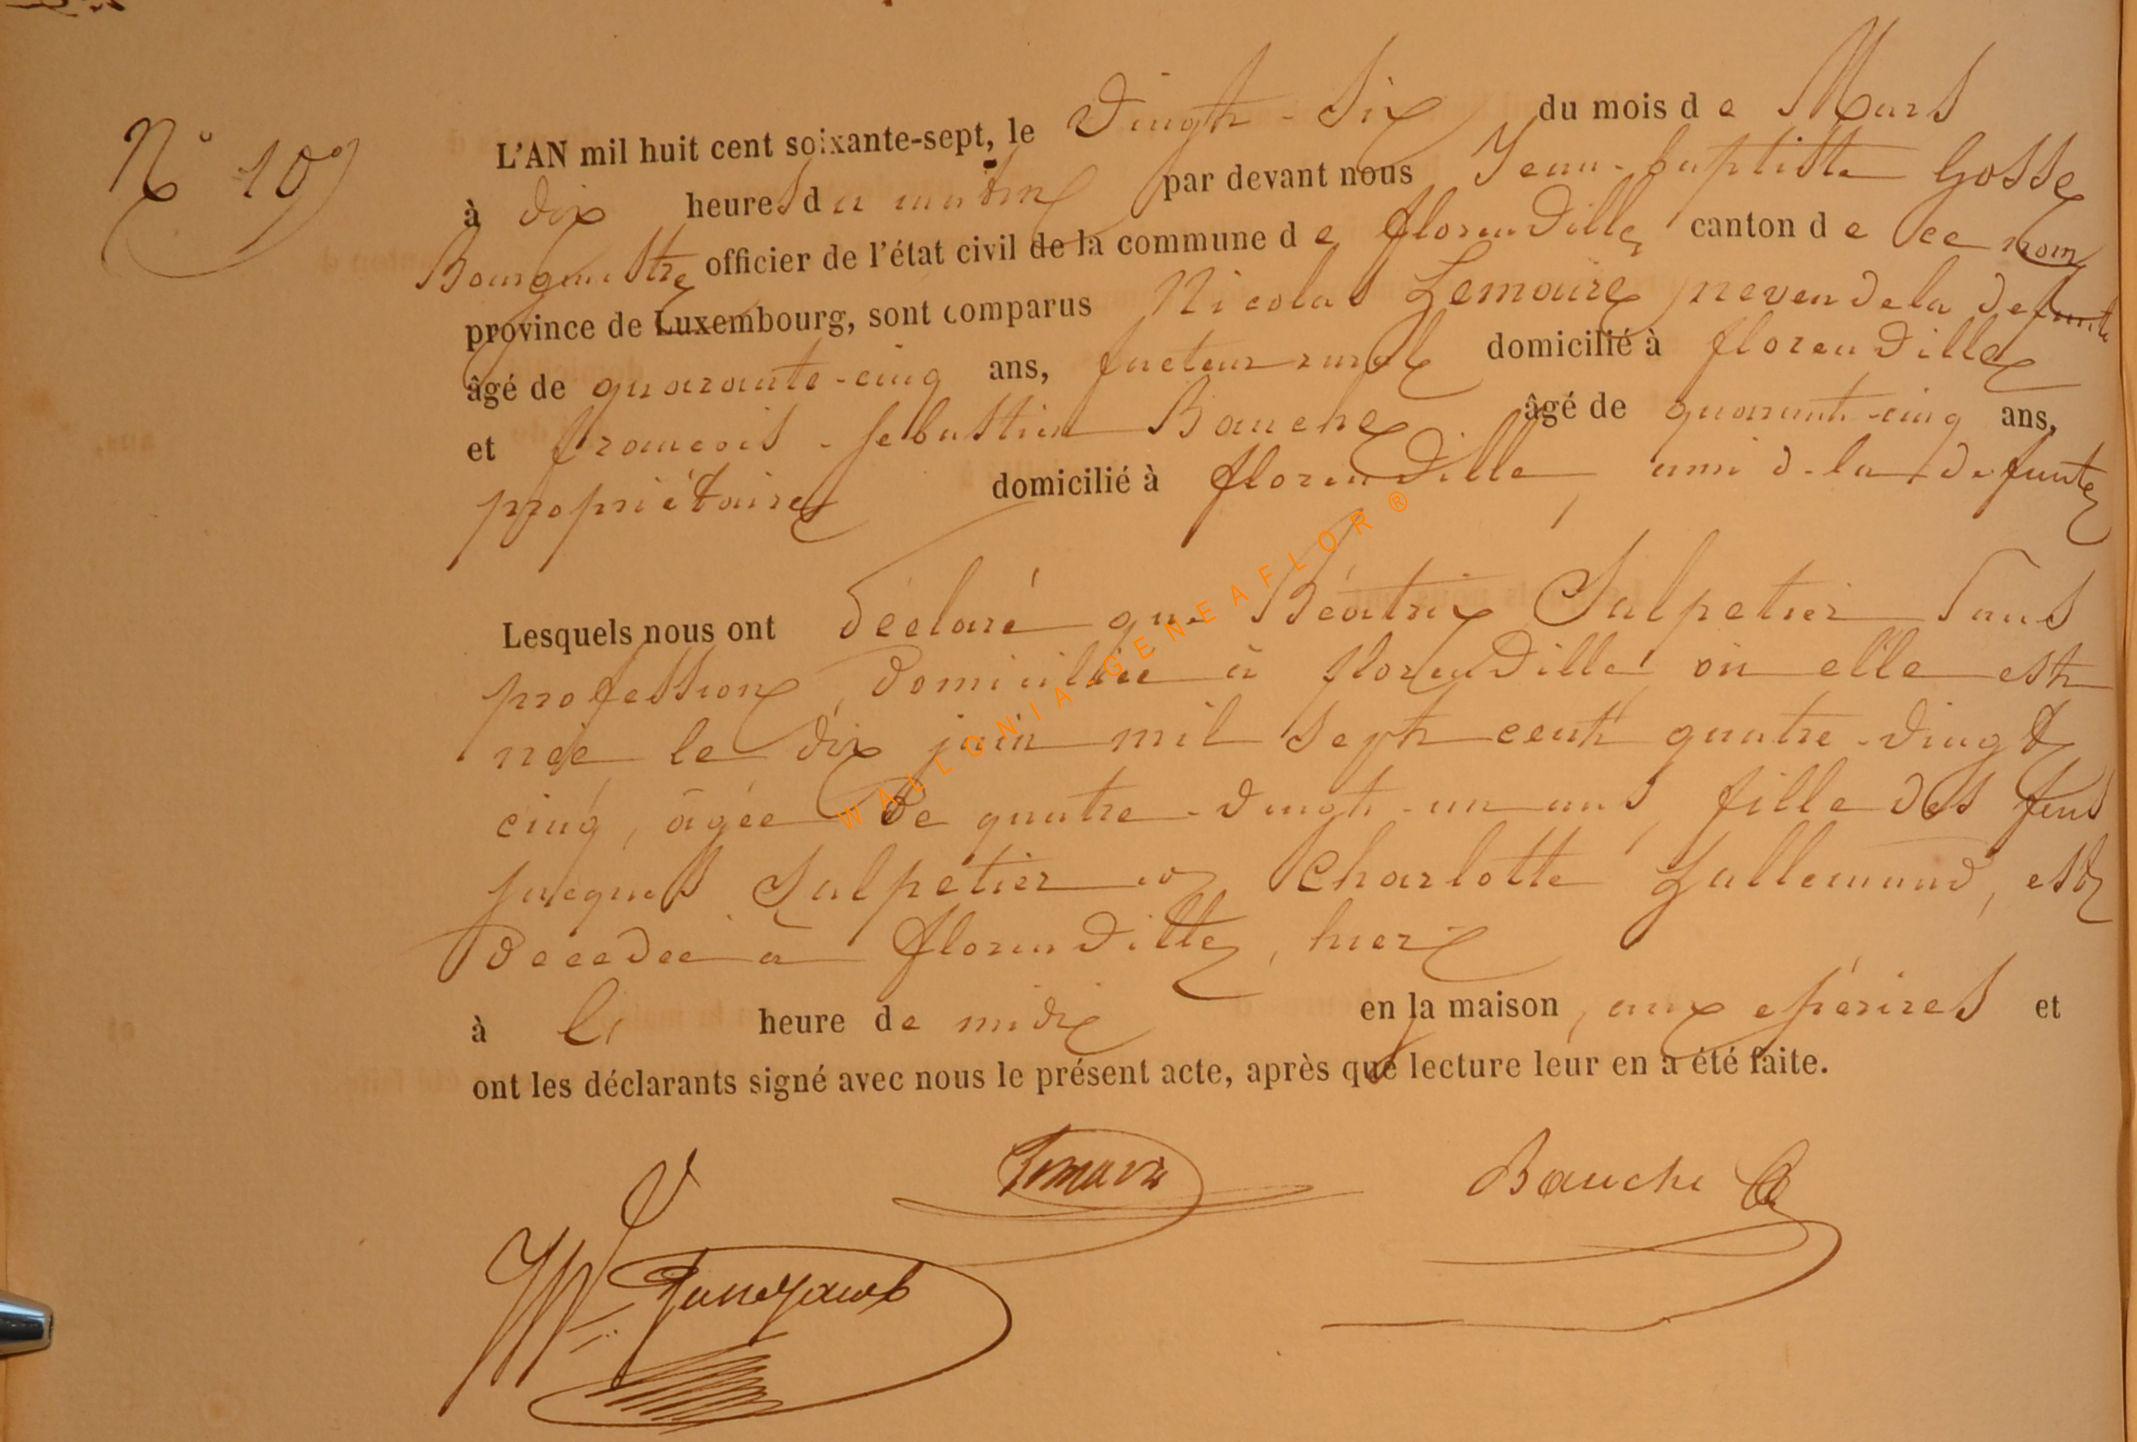 N° 10
L'AN mil huit cent soixante-sept, le vingt-six du mois de Mars
à dix heures du matin par devant nous Jean-baptiste Gosse
Bourgmestre officier de l'état civil de la commune de florenville canton de ce nom
province de Luxembourg, sont comparus Nicolas Lemaire neveu de la defunte
âgé de quarante-cinq ans, facteur rural domicilié à florenville
et francois-sebastien Bauche âgé de quarante-cinq ans,
propriétaire domicilié à florenville, ami de la defunte
Lesquels nous ont déclaré que Béatrix Salpetier sans
profession, domiciliée à florenville où elle est
née le dix juin mil sept cent quatre-vingt
cinq, âgée de quatre-vingt-un ans, fille des feus
jacques Salpétier et Charlotte Lallemand, est
décedée à florenville, hier
à heure de midi en la maison, aux et
ont les déclarants signé avec nous le présent acte, après que lecture leur en a été faite.
Lemaire Bauche
WALLONIA-GENEAFLOR®